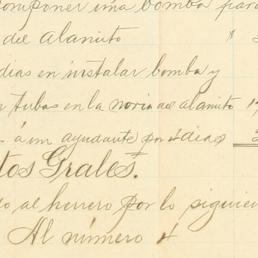 componer una bomba para
del alamito $
dias en instalar bomba y
tubos en la noria del alamito
á un ayudante por 4 dias
tos Grales.
al herrero por lo siguien
Al número 4